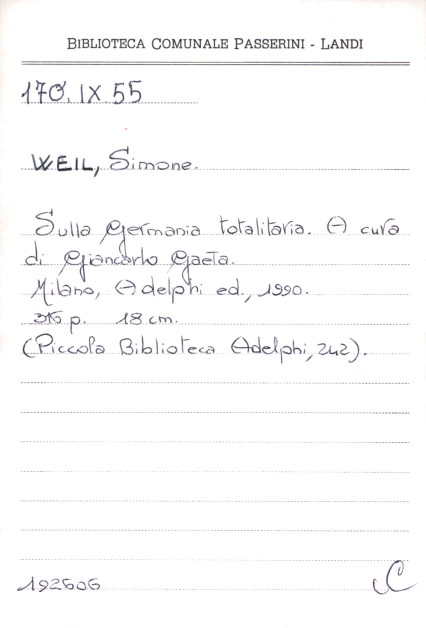 BIBLIOTECA COMUNALE PASSERINI - LANDI
170. IX 55
WEIL, Simone.
Sulla Germania totalitaria. A cura
di Giancarlo Gaeta.
Milano, Adelphi ed., 1990.
316 p. 18 cm.
(Piccola Biblioteca Adelphi, 242).
192606
C